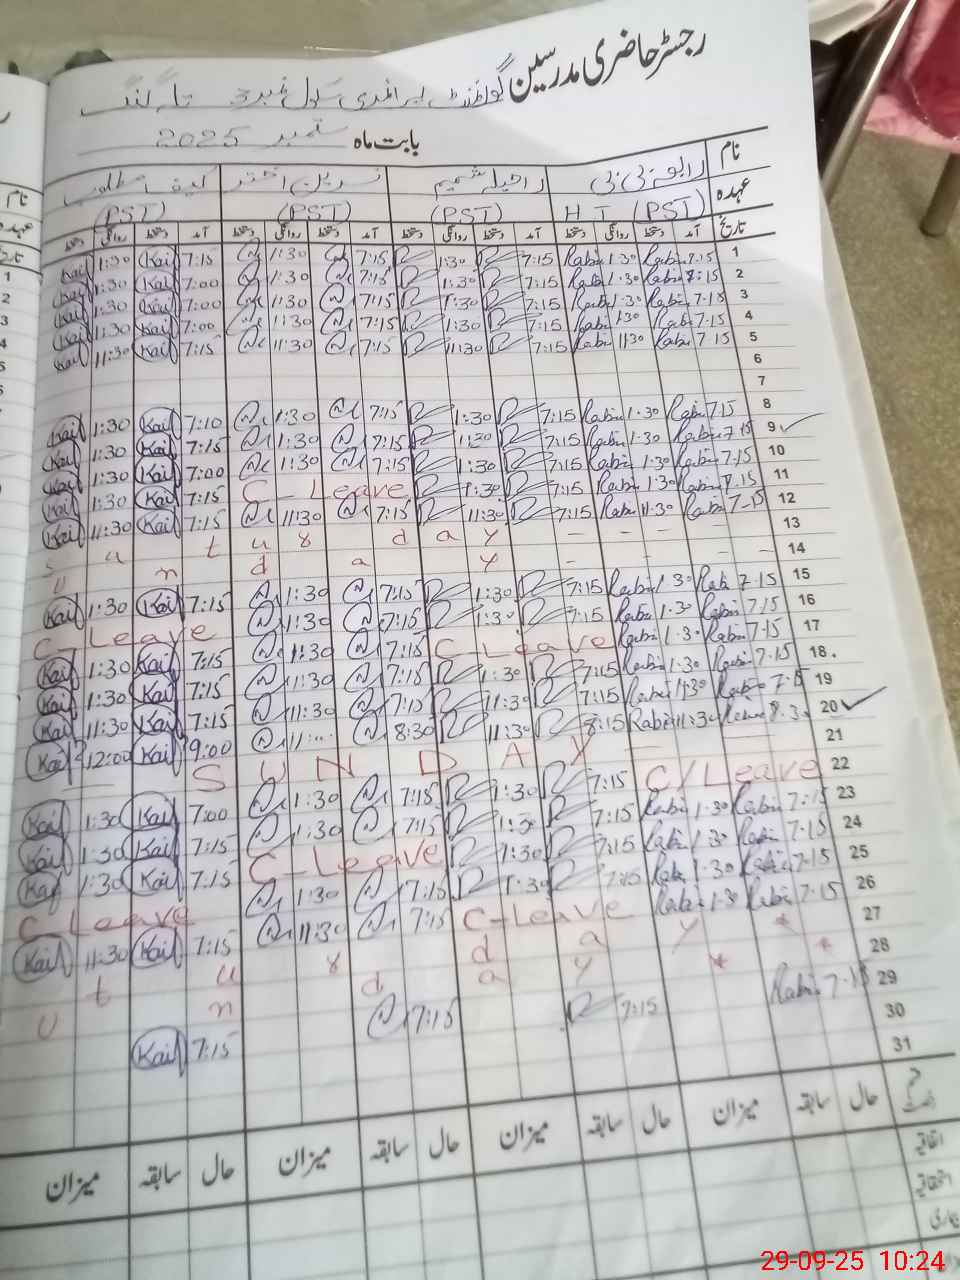 رجسٹر حاضری مدرسین گورنمنٹ پرائمری سکول نمبر 3 تلہ گنگ
بابت ماہ ستمبر 2025
نام رابعہ بی بی راحیلہ شمیم نسرین اختر کیف مطلوب
عہدہ H T (PST) (PST) (PST) (PST)
تاریخ آمد دستخط روانگی دستخط آمد دستخط روانگی دستخط آمد دستخط روانگی دستخط آمد دستخط روانگی دستخط
Kaif 1:30 Kaif 7:15 1:30 7:15 1:30 7:15 Rabi 1.30 Rabi 7.15 1
Kaif 1:30 Kaif 7:00 1:30 7:15 1:30 7:15 Rabi 1.30 Rabi 7.15 2
Kaif 1:30 Kaif 7:00 1:30 7:15 1:30 7:15 Rabi 1.30 Rabi 7.15 3
Kaif 1:30 Kaif 7:00 1:30 7:15 1:30 7:15 Rabi 1.30 Rabi 7.15 4
Kaif 11:30 Kaif 7:15 11:30 7:15 11:30 7:15 Rabi 11.30 Rabi 7.15 5
6
7
Kaif 1:30 Kaif 7:10 1:30 7:15 1:30 7:15 Rabi 1.30 Rabi 7.15 8
Kaif 1:30 Kaif 7:15 1:30 7:15 1:30 7:15 Rabi 1.30 Rabi 7.15 9
Kaif 1:30 Kaif 7:00 1:30 7:15 1:30 7:15 Rabi 1.30 Rabi 7.15 10
Kaif 1:30 Kaif 7:15 C-Leave 1:30 7:15 Rabi 1.30 Rabi 7.15 11
Kaif 11:30 Kaif 7:15 11:30 7:15 11:30 7:15 Rabi 11.30 Rabi 7-15 12
S a t u r d a y - - - - 13
S u n d a y - - - - 14
Kaif 1:30 Kaif 7:15 1:30 7:15 1:30 7:15 Rabi 1.30 Rabi 7.15 15
C-Leave 1:30 7:15 1:30 7:15 Rabi 1.30 Rabi 7.15 16
Kaif 1:30 Kaif 7:15 1:30 7:15 C-Leave Rabi 1.30 Rabi 7.15 17
Kaif 1:30 Kaif 7:15 1:30 7:15 1:30 7:15 Rabi 1.30 Rabi 7.15 18.
Kaif 11:30 Kaif 7:15 11:30 7:15 11:30 7:15 Rabi 11.30 Rabi 7.15 19
Kaif 12:00 Kaif 9:00 8:30 11:30 8:15 Rabi 11:30 20
— S U N D A Y — — 21
Kaif 1:30 Kaif 7:00 1:30 7:15 1:30 7:15 C/Leave 22
Kaif 1:30 Kaif 7:15 1:30 7:15 1:30 7:15 Rabi 1.30 Rabi 7.15 23
Kaif 1:30 Kaif 7:15 C-Leave 1:30 7:15 Rabi 1.30 Rabi 7.15 24
C-Leave 1:30 7:15 1:30 7:15 Rabi 1.30 Rabi 7.15 25
Kaif 11:30 Kaif 7:15 11:30 7:15 C-Leave Rabi 1.30 Rabi 7.15 26
t u r d a y * * 27
U n d a y * * 28
Kaif 7:15 7:15 7:15 Rabi 7.15 29
30
31
حال سابقہ میزان حال سابقہ میزان حال سابقہ میزان حال سابقہ میزان
اتفاقیہ
استحقاقیہ
29-09-25 10:24